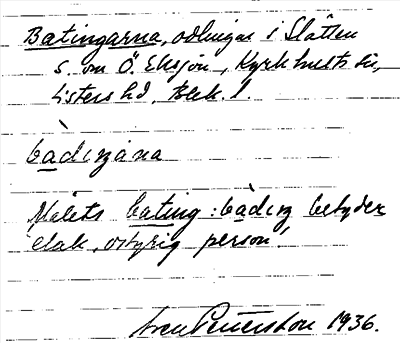 Batingarna, odlingar i Slätten
s. om Ö. Eksjön, Kyrkhults sn,
Listers hd, Blek. l.
bàdıŋána
Målets bating : bàdıŋ betyder
elak, ostyrig person!
Sven Petersson 1936.